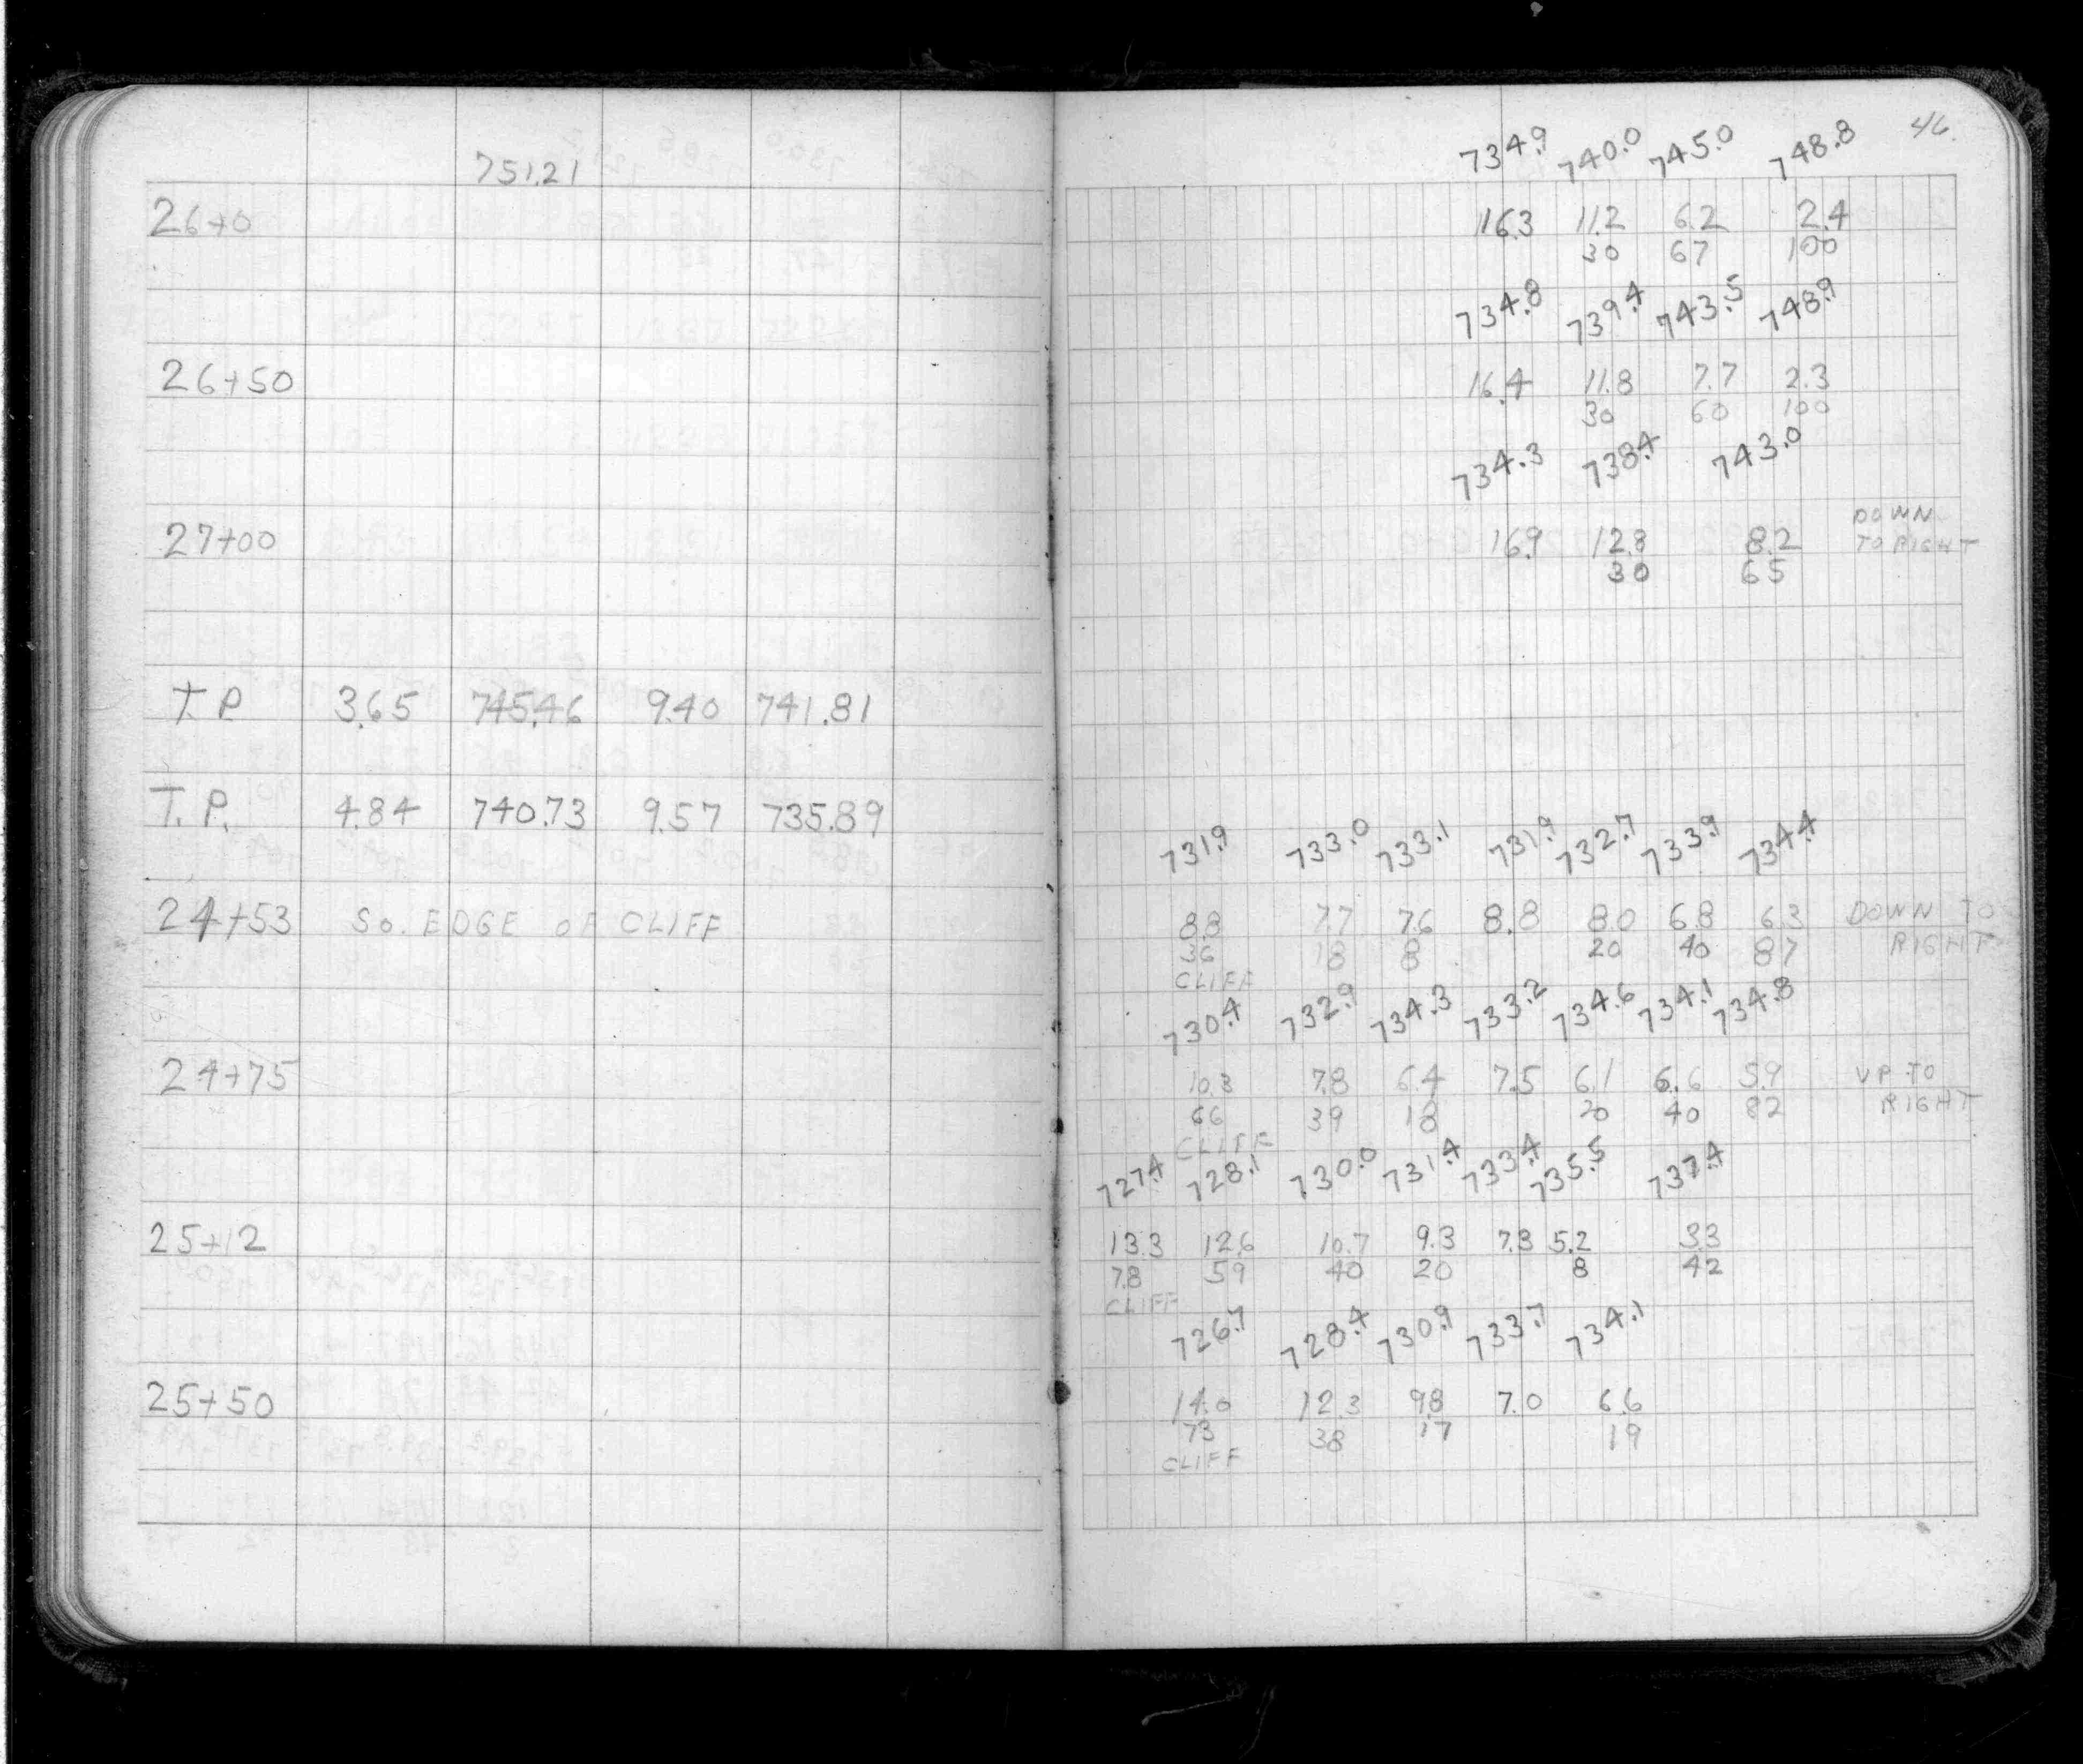 46
751.21
734.9 740.0 745.0 748.8
26+0 16.3 11.2 6.2 2.4
30 67 100
734.8 739.4 743.5 748.9
26+50 16.4 11.8 7.7 2.3
30 60 100
734.3 738.4 743.0
DOWN
27+00 16.9 12.8 8.2 TO RIGHT
30 65
T.P. 3.65 745.46 9.40 741.81
T.P. 4.84 740.73 9.57 735.89
731.9 733.0 733.1 731.9 732.7 733.9 734.4
24+53 SO. EDGE OF CLIFF 8.8 7.7 7.6 8.8 8.0 6.8 6.3 DOWN TO
36 18 8 20 40 87 RIGHT
CLIFF
730.4 732.9 734.3 733.2 734.6 734.1 734.8
24+75 10.3 7.8 6.4 7.5 6.1 6.6 5.9 UP TO
66 39 18 20 40 82 RIGHT
CLIFF
727.4 728.1 730.0 731.4 733.4 735.5 737.4
25+12 13.3 12.6 10.7 9.3 7.3 5.2 3.3
78 59 40 20 8 42
CLIFF
726.7 728.4 730.9 733.7 734.1
25+50 14.0 12.3 9.8 7.0 6.6
73 38 17 19
CLIFF